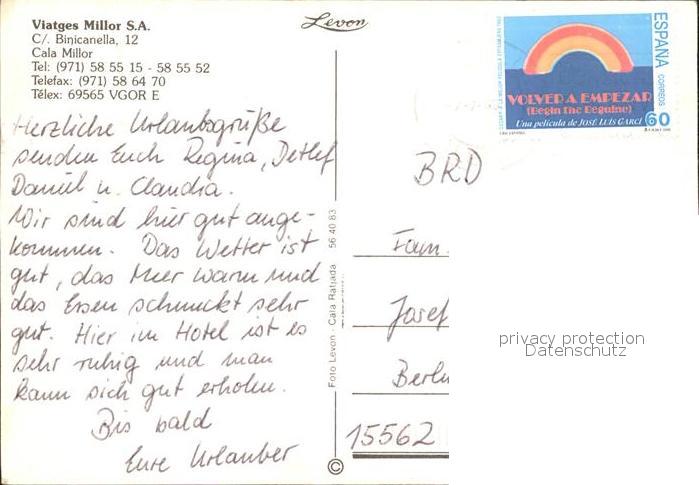 Viatges Millor S.A.
C/. Biņicanella, 12
Cala Millor
Tel: (971) 58 55 15 - 58 55 52
Telefax: (971) 58 64 70
Télex: 69565 VGOR E
Levon
Herzliche Urlaubsgrüße
senden Euch Regina, Detlef
Daniel u. Claudia.
Wir sind hier gut ange-
kommen. Das Wetter ist
gut, das Meer warm und
das Essen schmeckt sehr
gut. Hier im Hotel ist es
sehr ruhig und man
kann sich gut erholen.
Bis bald
Eure Urlauber
Foto Levon - Cala Ratjada 56 40 83
©
ESPAÑA
CORREOS
60
VOLVER A EMPEZAR
(Begin the Beguine)
Una película de JOSÉ LUÍS GARCÍ
BRD
Fam.
Josef
Berlin
15562
privacy protection
Datenschutz